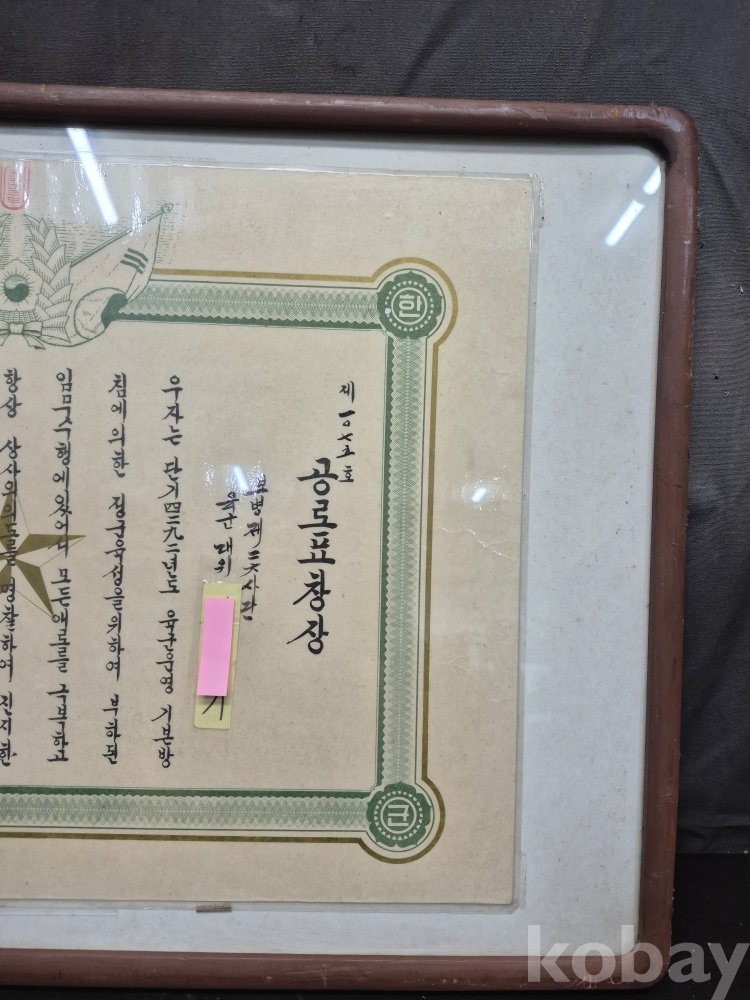 제一〇七五호
공로표창상
보병제二六사단
육군 대위
우자는 단기四二九二년도 육군운영 기본방
침에 의한 업무수행에있어서 부하문
임무수행에있어서 모든애로를 극복하고
항상 상사의의도를 명찰하여 진지한
한
군
kobay